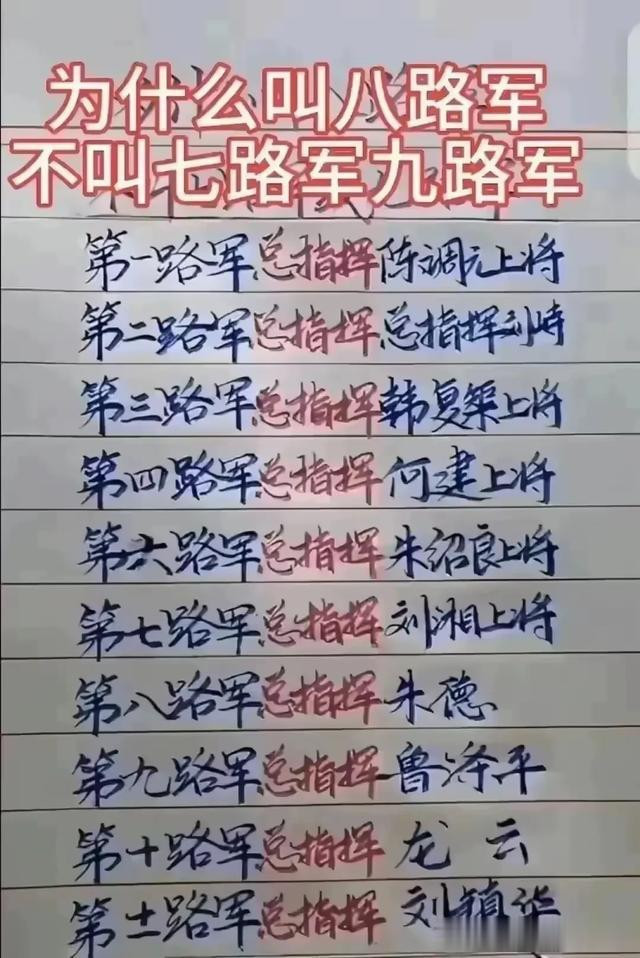 为什么叫八路军
不叫七路军九路军
第一路军总指挥陈调元上将
第二路军总指挥总指挥刘峙
第三路军总指挥韩复榘上将
第四路军总指挥何建上将
第六路军总指挥朱绍良上将
第七路军总指挥刘湘上将
第八路军总指挥朱德
第九路军总指挥鲁涤平
第十路军总指挥龙云
第十一路军总指挥刘镇华